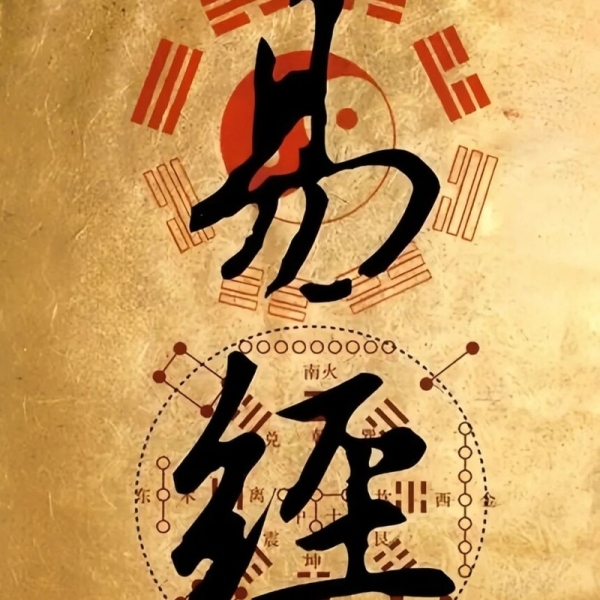 易
经
南火
兑 乾 巽
东 木 离 中 土 坎 西 金
震 艮
坤